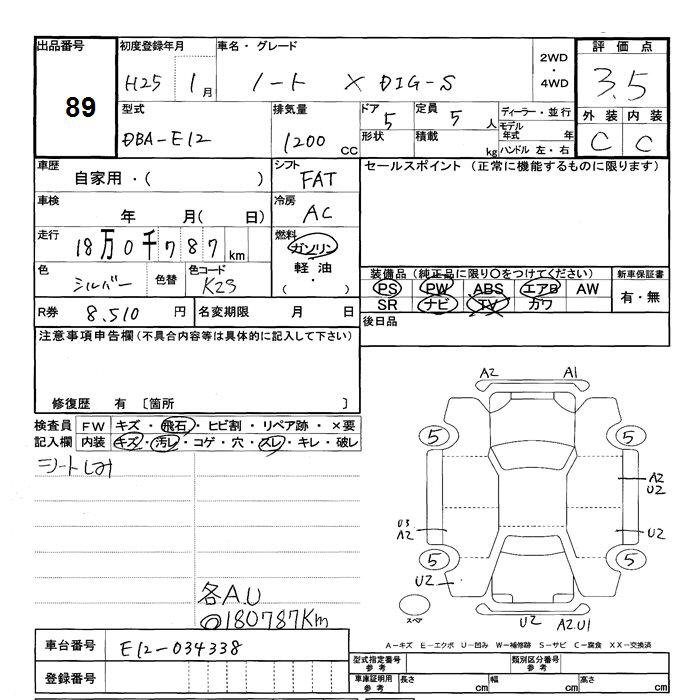 出品番号
89
初度登録年月
H25 1月
車名・グレード
ノート X DIG-S
2WD
・
4WD
評価点
3.5
外装 内装
C C
型式
DBA-E12
排気量
1200 CC
ドア 5
形状
定員 5 人
積載 kg
ディーラー・並行
モデル年式 年
ハンドル 左・右
車歴
自家用・( )
シフト
FAT
車検
年 月( 日)
冷房
AC
走行
18万0千787 km
燃料
ガソリン
軽油
( ・ )
色
シルバー
色替
色コード
K23
R券 8,510 円
名変期限 月 日
セールスポイント(正常に機能するものに限ります)
装備品(純正品に限り○をつけてください)
PS PW ABS エアB AW
SR ナビ TV カワ
新車保証書
有・無
後日品
注意事項申告欄(不具合内容等は具体的に記入して下さい)
修復歴 有 〔箇所 〕
検査員記入欄
FW キズ・飛石・ヒビ割・リペア跡・×要
内装 キズ・汚レ・コゲ・穴・スレ・キレ・破レ
シートしみ
各A.U
@180787Km
A2 A1
5 5
A2
U2
U3
A2
U2
5 5
U2
スペア
U2 A2.U1
A-キズ E-エクボ U-凹み W-補修跡 S-サビ C-腐食 XX-交換済
車台番号 E12-034338
登録番号
型式指定番号参考
類別区分番号参考
車庫証明用参考
長さ cm 幅 cm 高さ cm